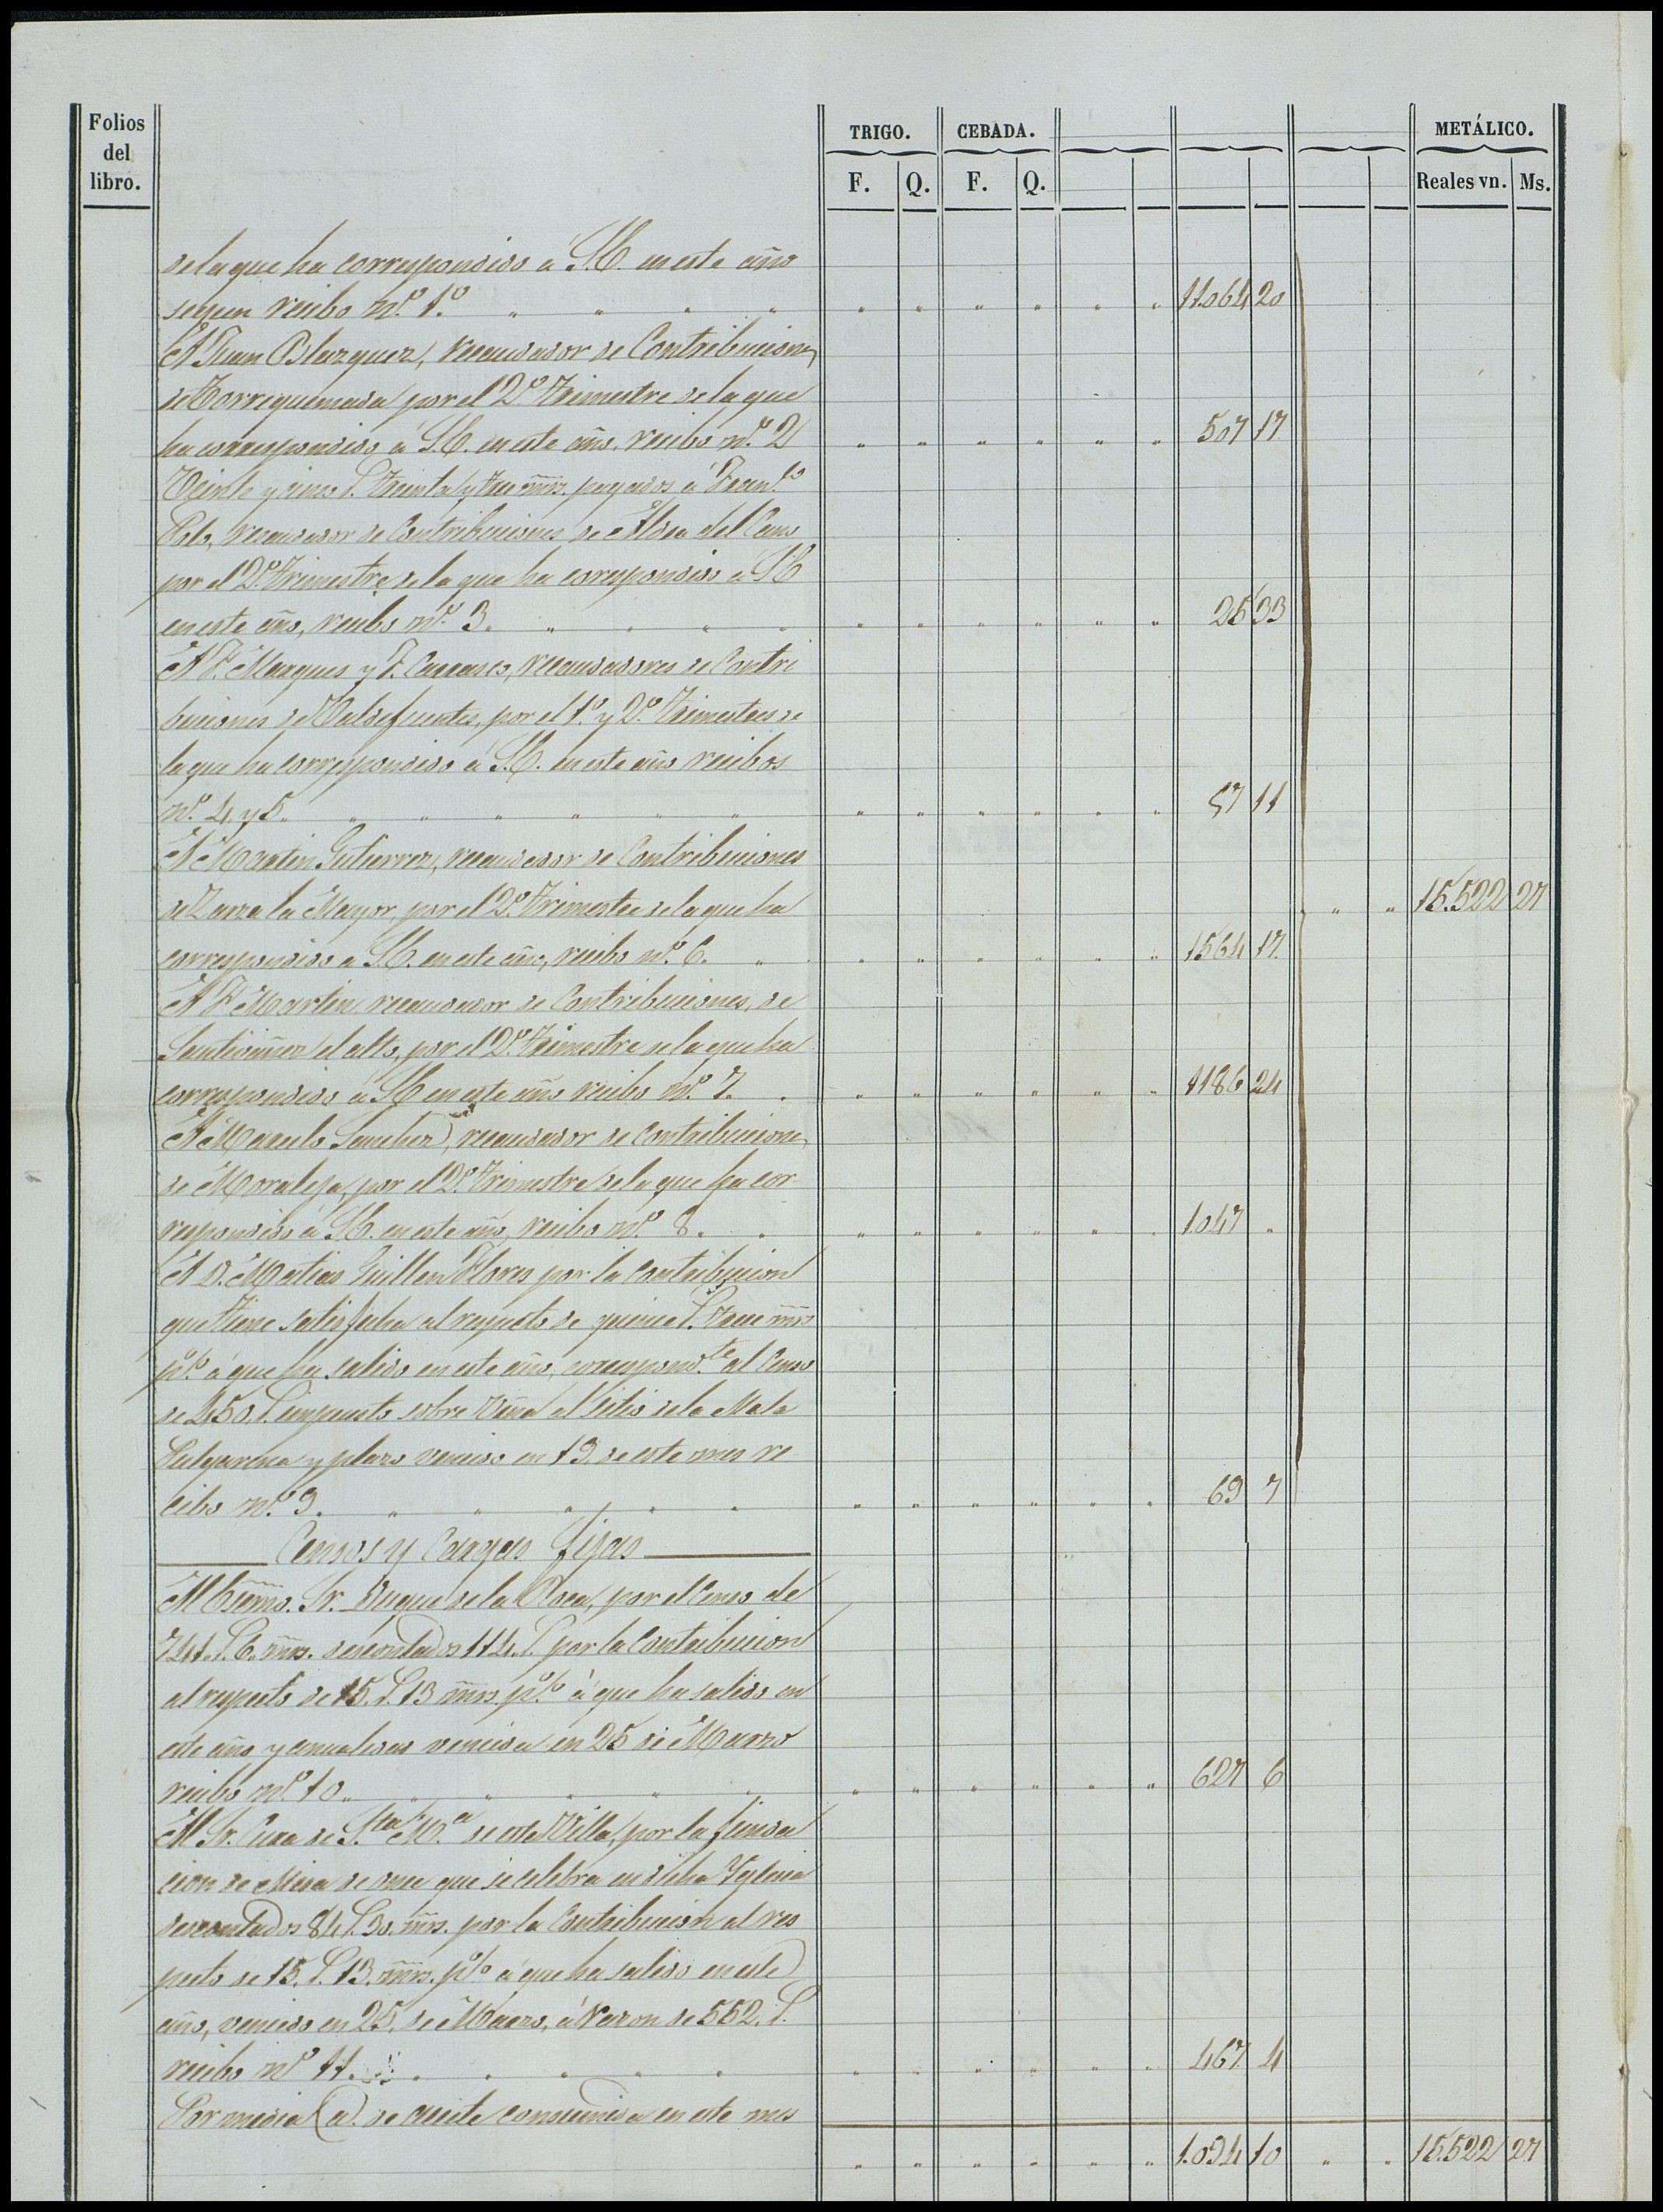 Folios
del
libro.
TRIGO. CEBADA. METÁLICO.
F. Q. F. Q. Reales vn. Ms.
de la que ha correspondido á S.E. en este año
segun recibo n.º 1.º " " " " " " " " " " 11.064 20
A Juan Blazquez, recaudador de Contribuciones
de Torrequemada por el 2.º trimestre de la que
ha correspondido á S.E. en este año, recibo n.º 2 " " " " " " 507 17
Veinte y cinco r.s treinta y tres mrs. pagados á Fran.co
Polo, recaudador de Contribuciones de Aldea del Cano
por el 2.º trimestre de la que ha correspondido á S.E.
en este año, recibo n.º 3. " " " " " " " " " " 25 33
A F. Marques y F. Carrasco, recaudadores de Contri
buciones de Valdefuentes, por el 1.º y 2.º trimestres de
la que ha correspondido á S.E. en este año recibos
n.º 4 y 5. " " " " " " " " " " " " 57 11
A Martin Gutierrez, recaudador de Contribuciones
de Zarza la Mayor, por el 2.º trimestre de la que ha " " 15.522 27
correspondido á S.E. en este año, recibo n.º 6. " " " " " " " 1564 17
A F. Martin recaudador de Contribuciones, de
Santibañez el alto, por el 2.º trimestre de la que ha
correspondido á S.E. en este año recibo n.º 7. " " " " " " 1186 24
A Marcelo Sanchez, recaudador de Contribuciones
de Moraleja, por el 2.º trimestre de la que ha cor
respondido á S.E. en este año, recibo n.º 8. " " " " " " 1.047 "
A D. Matias Guillen Flores por la Contribucion
que tiene satisfecha al respecto de quince r.s trece mrs
p.º% á que ha salido en este año, correspond.te al Censo
de 450 r.s impuesto sobre viña al sitio de la Mata
y plazo vencido en 13 de este mes re
cibo n.º 9. " " " " " " " " " " " 69 7
Censos y Cargas fijas
Al Exmo. Sr. Duque de la Roca, por el Censo de
741 r.s 6 mrs. descontados 114 r.s por la Contribucion
al respecto de 15 r.s 13 mrs. p.º% á que ha salido en
este año y anualidad vencida en 25 de Marzo
recibo n.º 10. " " " " " " " " " " " 627 6
Al Sr. Cura de S.ta M.a de esta Villa, por la funda
cion de Misa de once que se celebra en dicha Yglesia
descontados 84 r.s 30 mrs. por la Contribucion al res
pecto de 15 r.s 13 mrs. p.º% á que ha salido en este
año, vencido en 25 de Marzo, á razon de 552 r.s
recibo n.º 11. " " " " " " " " " " " 467 4
Por media @ de aceite consumida en este mes
" " " " " " 1.094 10 " " 15.522 27